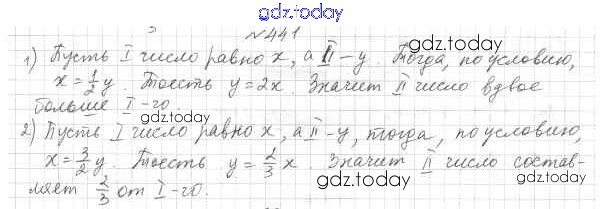 gdz.today
№441
gdz.today
1) Пусть I число равно x, а II – y. Тогда, по условию,
x = 1/2 y. Тоесть y = 2x. Значит II число вдвое
больше I-го.
gdz.today
2) Пусть I число равно x, а II – y, тогда, по условию,
x = 3/2 y. Тоесть y = 2/3 x. Значит II число состав-
ляет 2/3 от I-го.
gdz.today
gdz.today